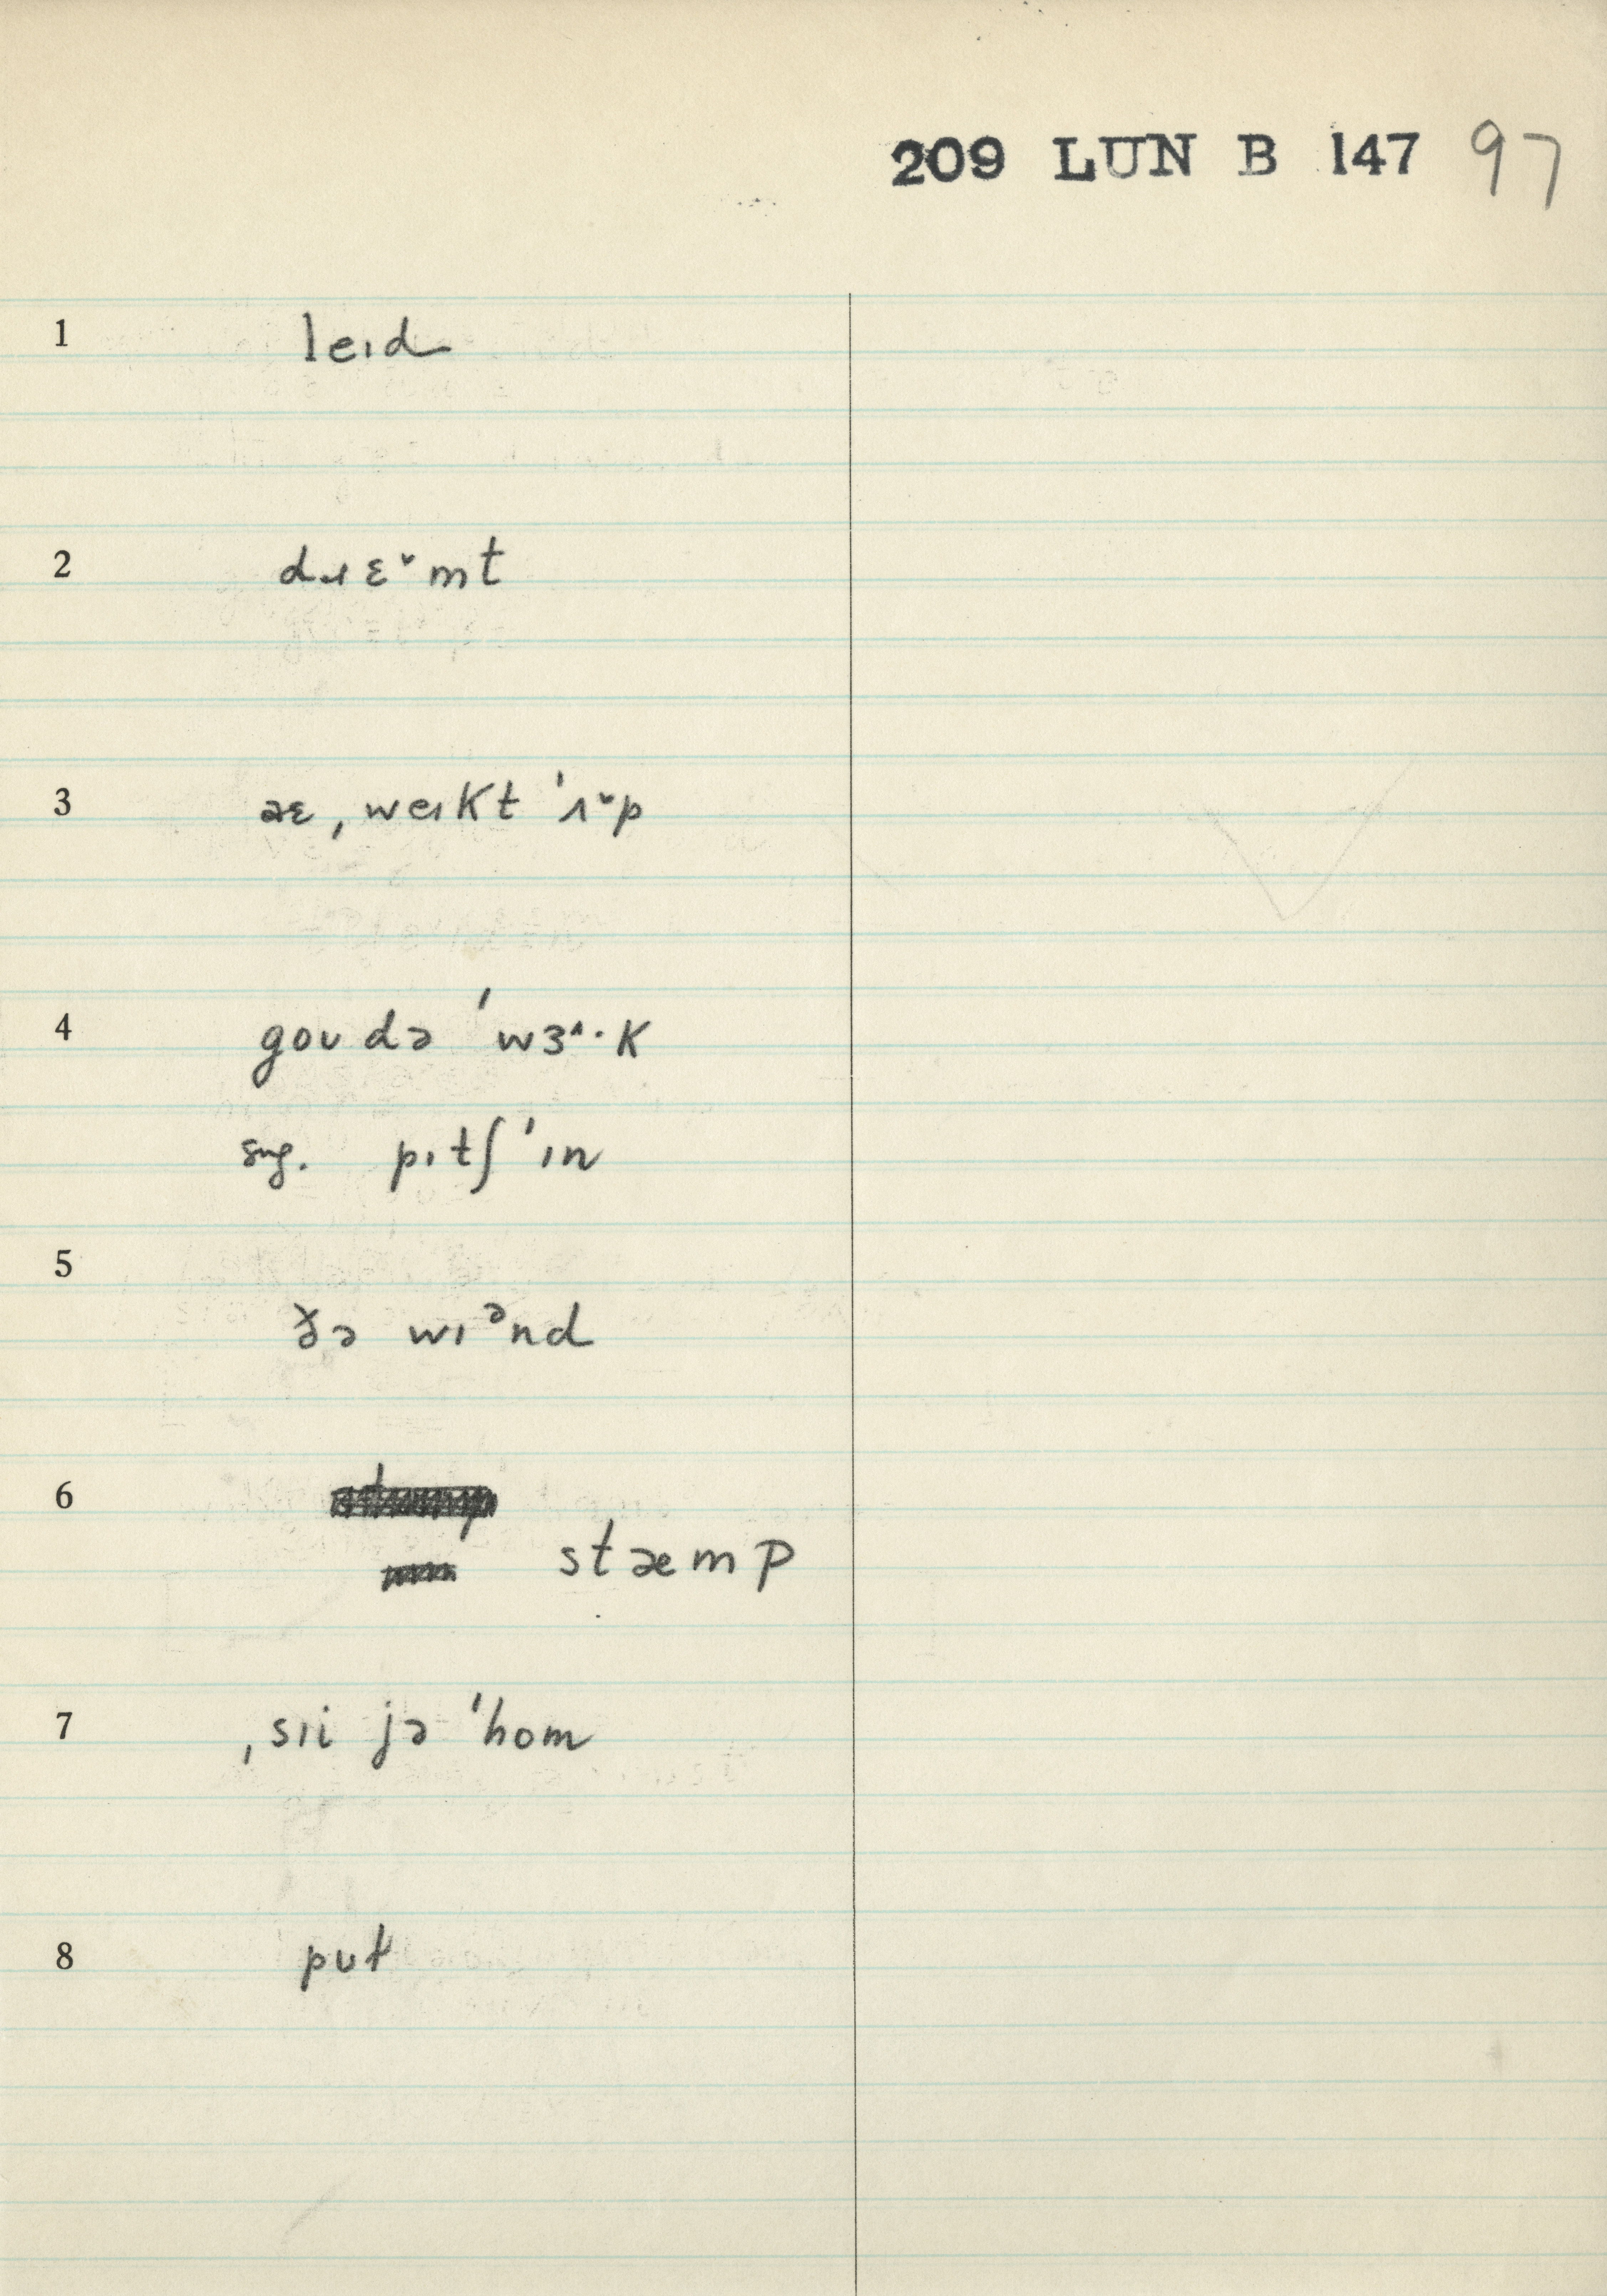 209 LUN B 147 97
1 leɪd
2 dɹɛ˅mt
3 aɛ ˌweɪkt ˈʌ˅p
4 goʊ də ˈwɜ^·k
sug. pɪtʃ ˈɪn
5 ðə wɪᵊnd
6
stæmp
7 ˌsɪi jə ˈhom
8 pʊt